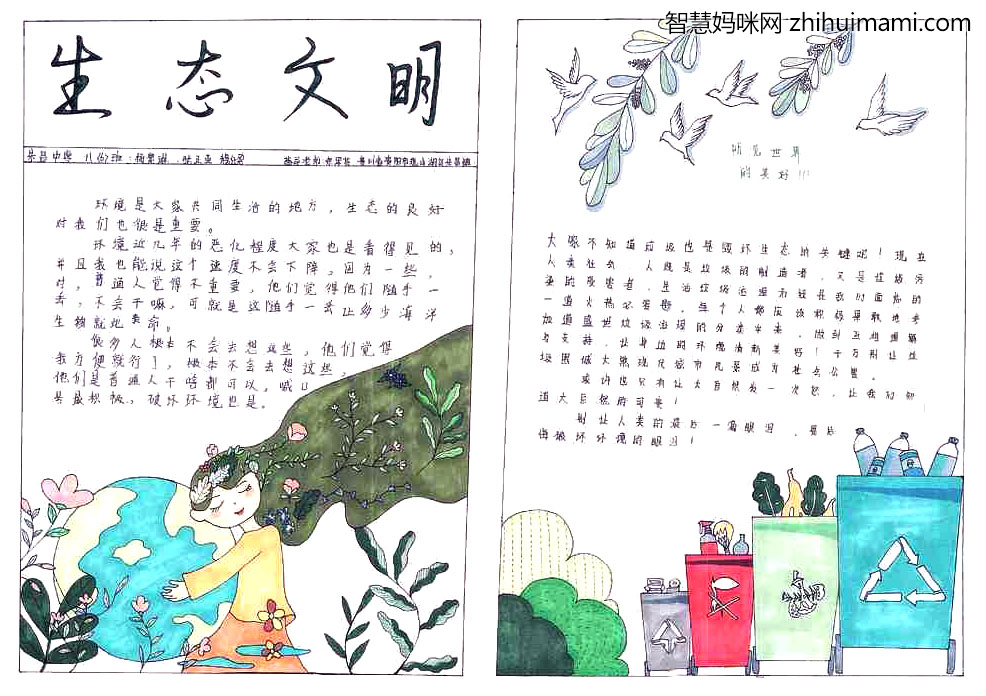 智慧妈咪网 zhihuimami.com
生态文明
环境是大家共同生活的地方，生态的良好
对我们也很是重要。
环境近几年的恶化程度大家也是看得见的，
并且我也能说这个速度不会下降。因为一些，
时，普通人觉得不重要，他们觉得他们随手一
丢，不会干嘛，可就是这随手一丢让多少海洋
生物就此丧命。
很多人根本不会去想这些，他们觉得
我方便就行了，根本不会去想这些，
他们是普通人干啥都可以，
是最积极，破坏环境也是。
所见世界
的美好!!!
大家不知道垃圾也是毁坏生态的关键呢！现在
人类社会，人既是垃圾的制造者，又是垃圾污
染的受害者，生活垃圾治理无疑是我们面临的
一道火热必答题，每个人都应该积极采取地参
加道
垃圾治理的分类中来，做到互相理解
与支持，让身边的环境清新美好！千万别让垃
圾围城大煞现代城市风景成为社会公害。
或许也只有让大自然发一次怒，让我们知
道大自然的可贵！
别让人类的最后一滴眼泪，是后
悔破坏环境的眼泪！